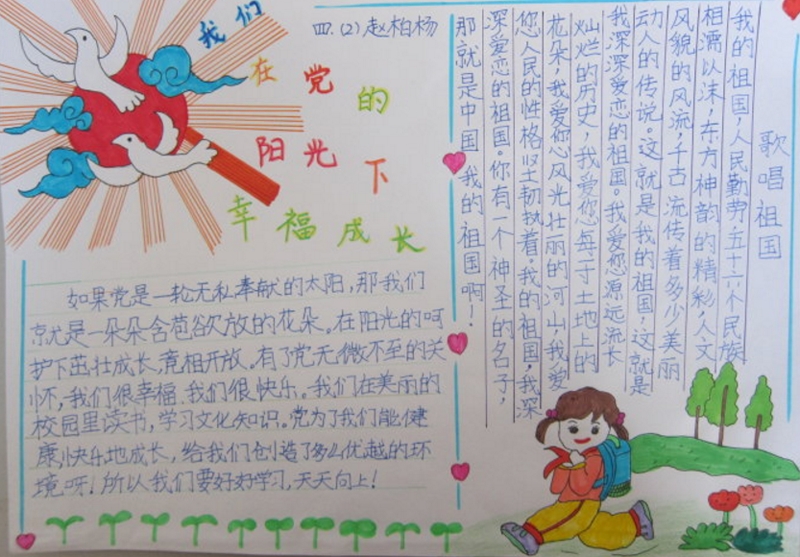 我们
在党的
阳光下
幸福成长
四.(2)赵柏杨
如果党是一轮无私奉献的太阳,那我们
就是一朵朵含苞欲放的花朵。在阳光的呵
护下茁壮成长,竞相开放。有了党无微不至的关
怀,我们很幸福,我们很快乐。我们在美丽的
校园里读书,学习文化知识。党为了我们能健
康,快乐地成长,给我们创造了多么优越的环
境呀!所以我们要好好学习,天天向上!
歌唱祖国
我的祖国,人民勤劳,五十六个民族
相濡以沫,东方神韵的精彩,人文
风貌的风流,千古流传着多少美丽
动人的传说。这就是我的祖国,这就是
我深深爱恋的祖国。我爱您源远流长
灿烂的历史,我爱您每寸土地上的
花朵,我爱您风光壮丽的河山,我爱
您人民的性格坚韧执着。我的祖国,我深
深爱恋的祖国。你有一个神圣的名子,
那就是中国,我的祖国啊!